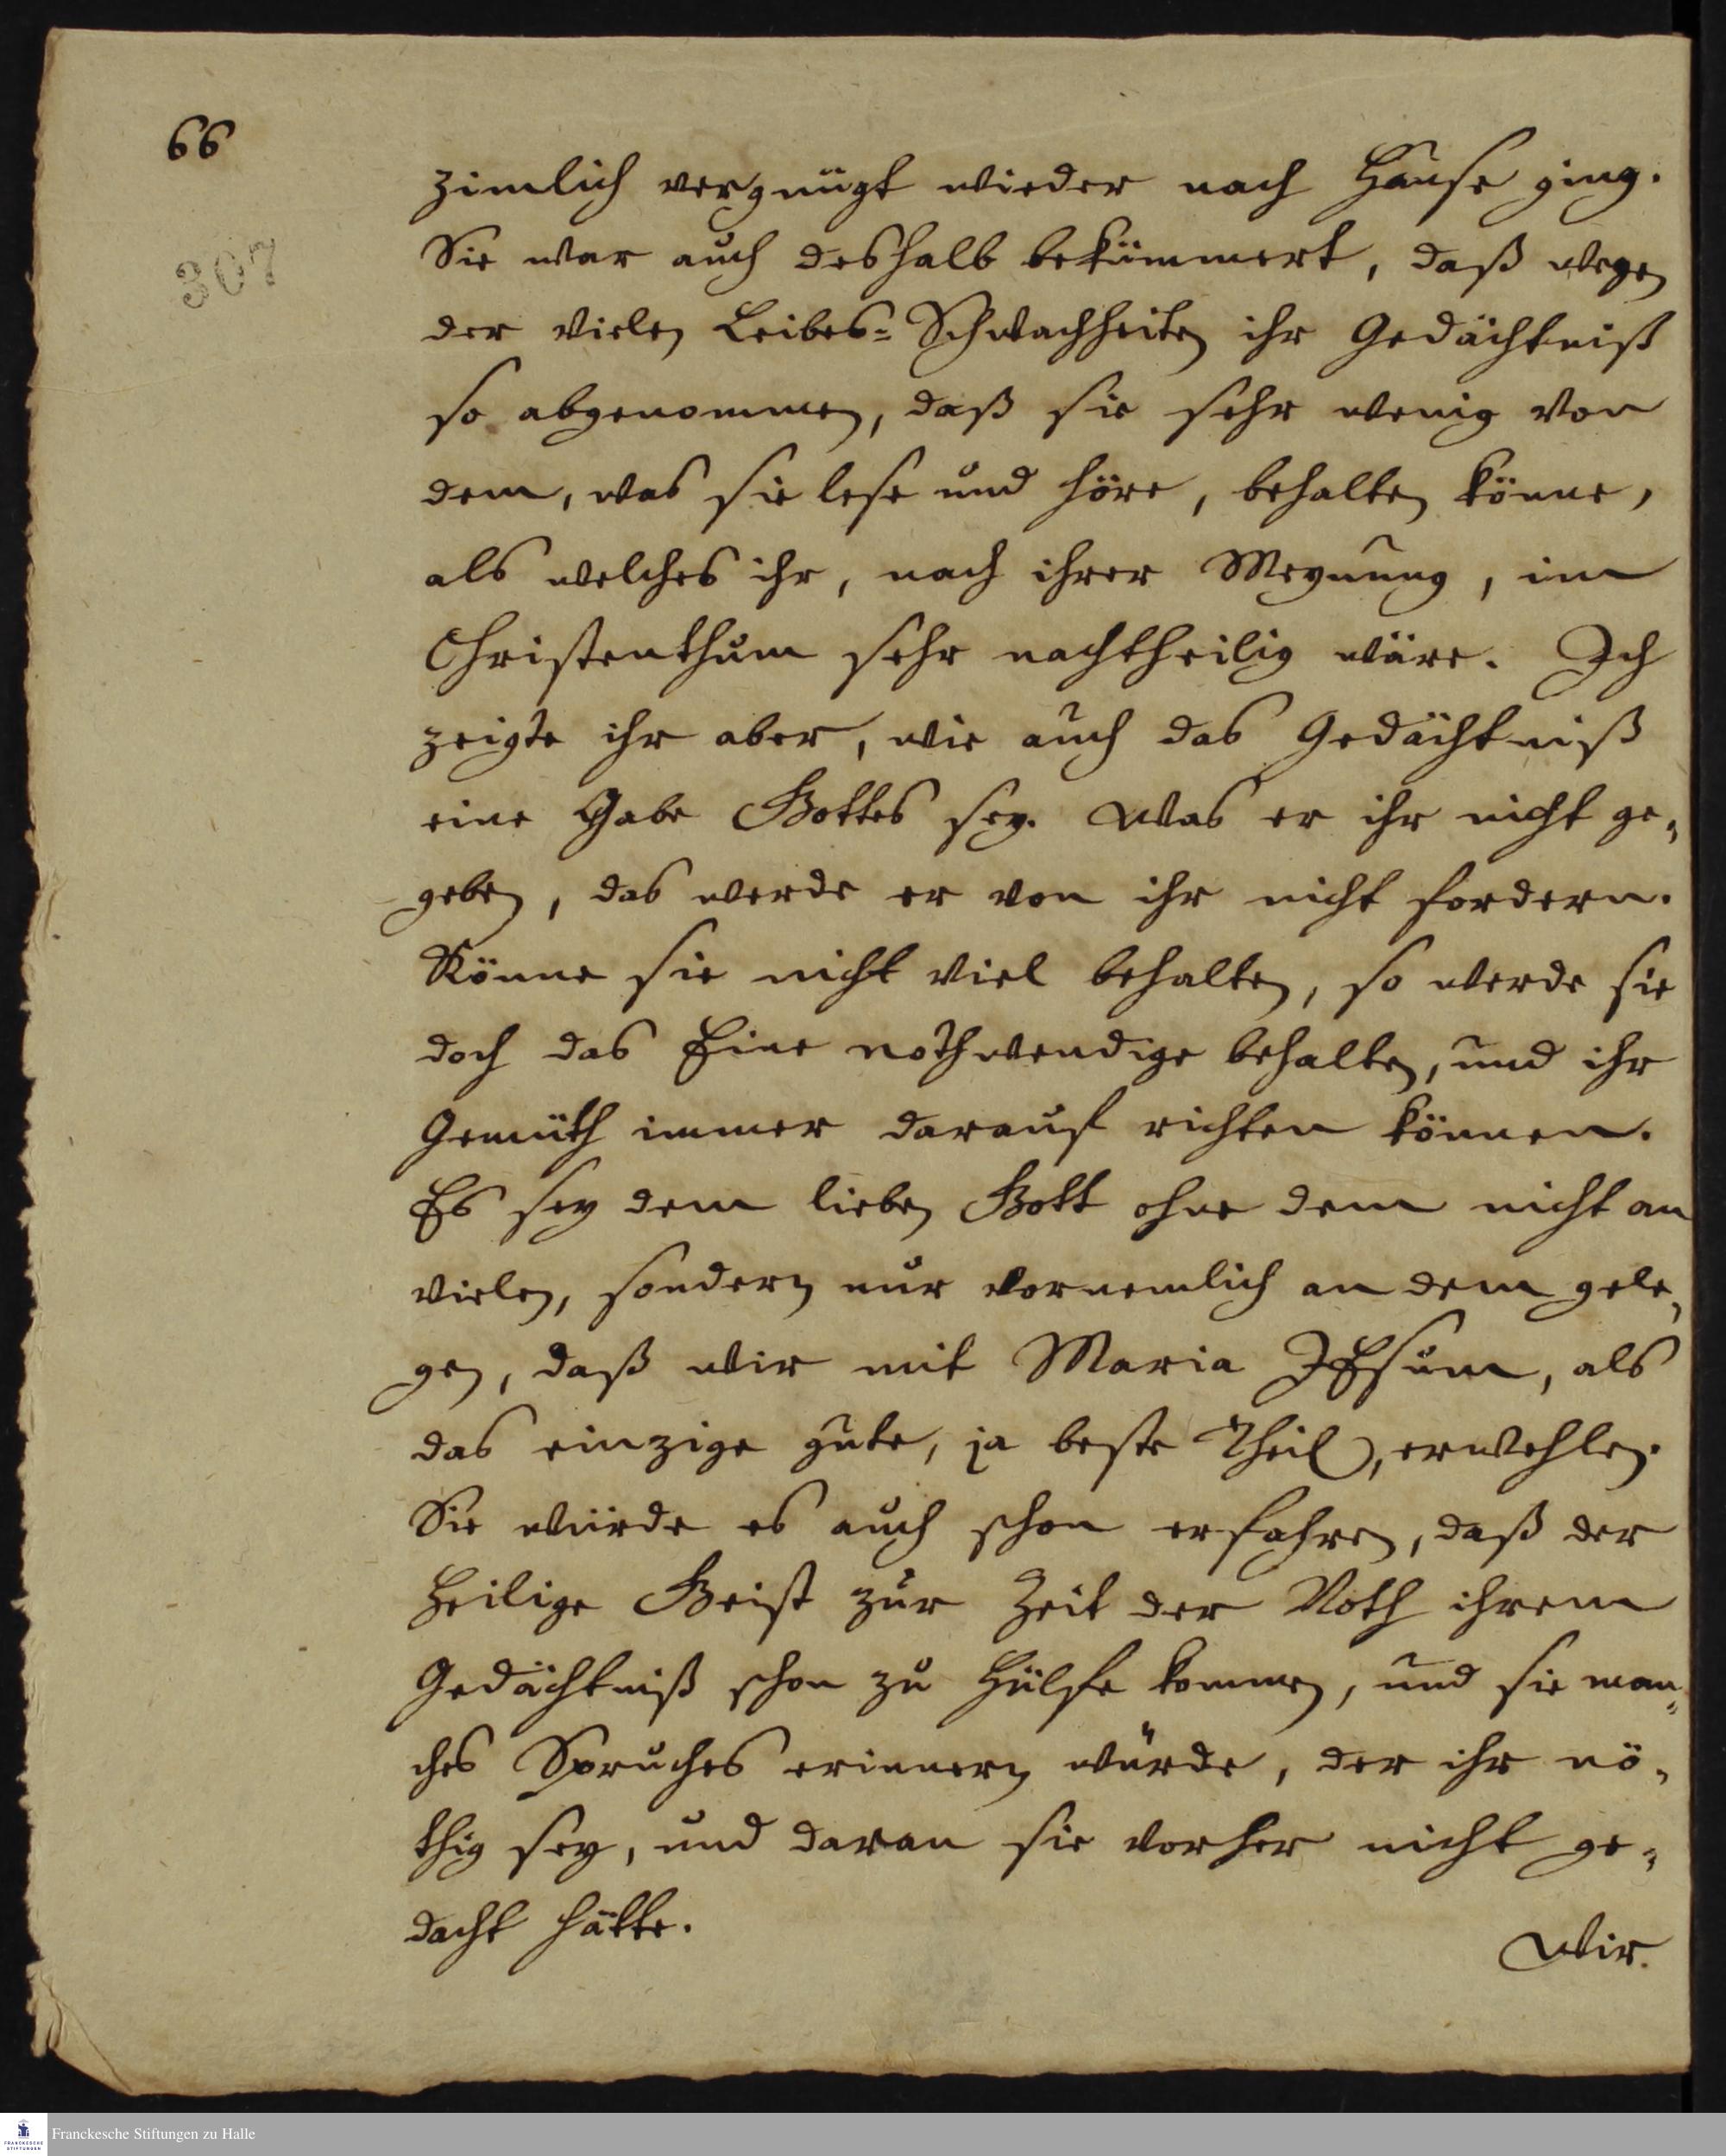 66
307
zimlich vergnügt wieder nach Hause ging.
Sie war auch deshalb bekümmert, daß wegen
der vielen Leibes-Schwachheiten ihr Gedächtniß
so abgenommen, daß sie sehr wenig von
dem, was sie lese und höre, behalten könne,
als welches ihr, nach ihrer Meynung, im
Christenthum sehr nachtheilig wäre. Ich
zeigte ihr aber, wie auch das Gedächtniß
eine Gabe Gottes sey. Was er ihr nicht ge-
geben, das werde er von ihr nicht fordern.
Könne sie nicht viel behalten, so werde sie
doch das Eine nothwendige behalten, und ihr
Gemüth immer darauf richten können.
Es sey dem lieben Gott ohne dem nicht an
vielen, sondern nur vornemlich an dem gele-
gen, daß wir mit Maria JEsum, als
das einzige gute, ja beste Theil, erwehlen.
Sie würde es auch schon erfahren, daß der
Heilige Geist zur Zeit der Noth ihrem
Gedächtniß schon zu Hülfe kommen, und sie man-
ches Spruches erinnern würde, der ihr nö-
thig sey, und daran sie vorher nicht ge-
dacht hätte.
Wir.
FRANCKESCHE STIFTUNGEN
Franckesche Stiftungen zu Halle